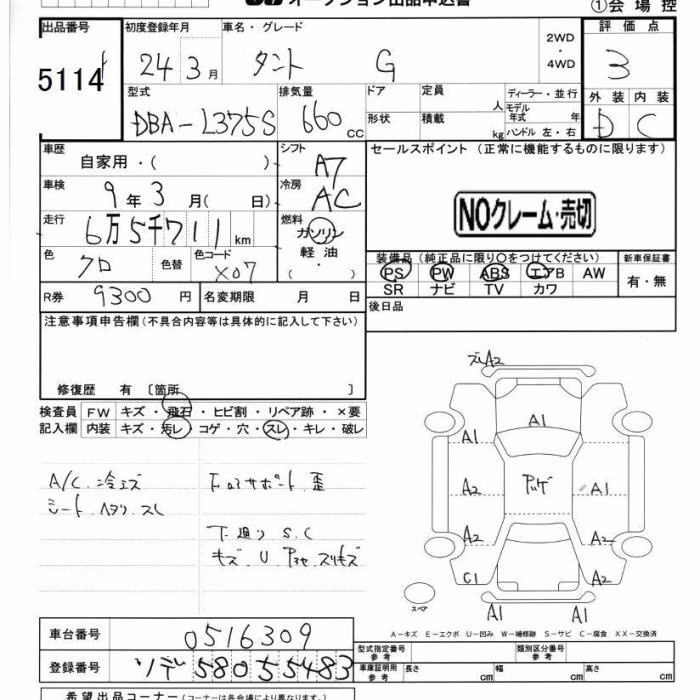 オークション出品申込書
①会場控
出品番号 初度登録年月 車名・グレード 評価点
5114 24年3月 タント G 2WD・4WD 3
型式 排気量 ドア 定員 人 ディーラー・並行 外装 内装
DBA-L375S 660cc 形状 積載 kg モデル年式 年 ハンドル 左・右 D C
車歴 自家用・( ) シフト A7 セールスポイント (正常に機能するものに限ります)
車検 9年3月( 日) 冷房 AC
NOクレーム・売切
走行 6万5千711km 燃料 ガソリン
軽油
( ・ )
装備品 (純正品に限り○をつけてください) 新車保証書
色 クロ 色替 色コード X07
PS PW ABS エアB AW 有・無
SR ナビ TV カワ
R券 9300円 名変期限 月 日 後日品
注意事項申告欄(不具合内容等は具体的に記入して下さい)
修復歴 有 〔箇所 〕
検査員 FW キズ・飛石・ヒビ割・リペア跡・×要
記入欄 内装 キズ・汚レ・コゲ・穴・スレ・キレ・破レ
A/C 冷エズ
シート ヘタリ スレ
下廻り S.C
キズ U
ズレA2
A1
A1
A2 A1
A2 A2
C1 A2
A1 A1
スペア
A-キズ E-エクボ U-凹み W-補修跡 S-サビ C-腐食 XX-交換済
車台番号 0516309
型式指定番号 参考 類別区分番号 参考
登録番号 5805 5483
車庫証明用 参考 長さ cm 幅 cm 高さ cm
希望出品コーナー (コーナーは各会場により異なります)